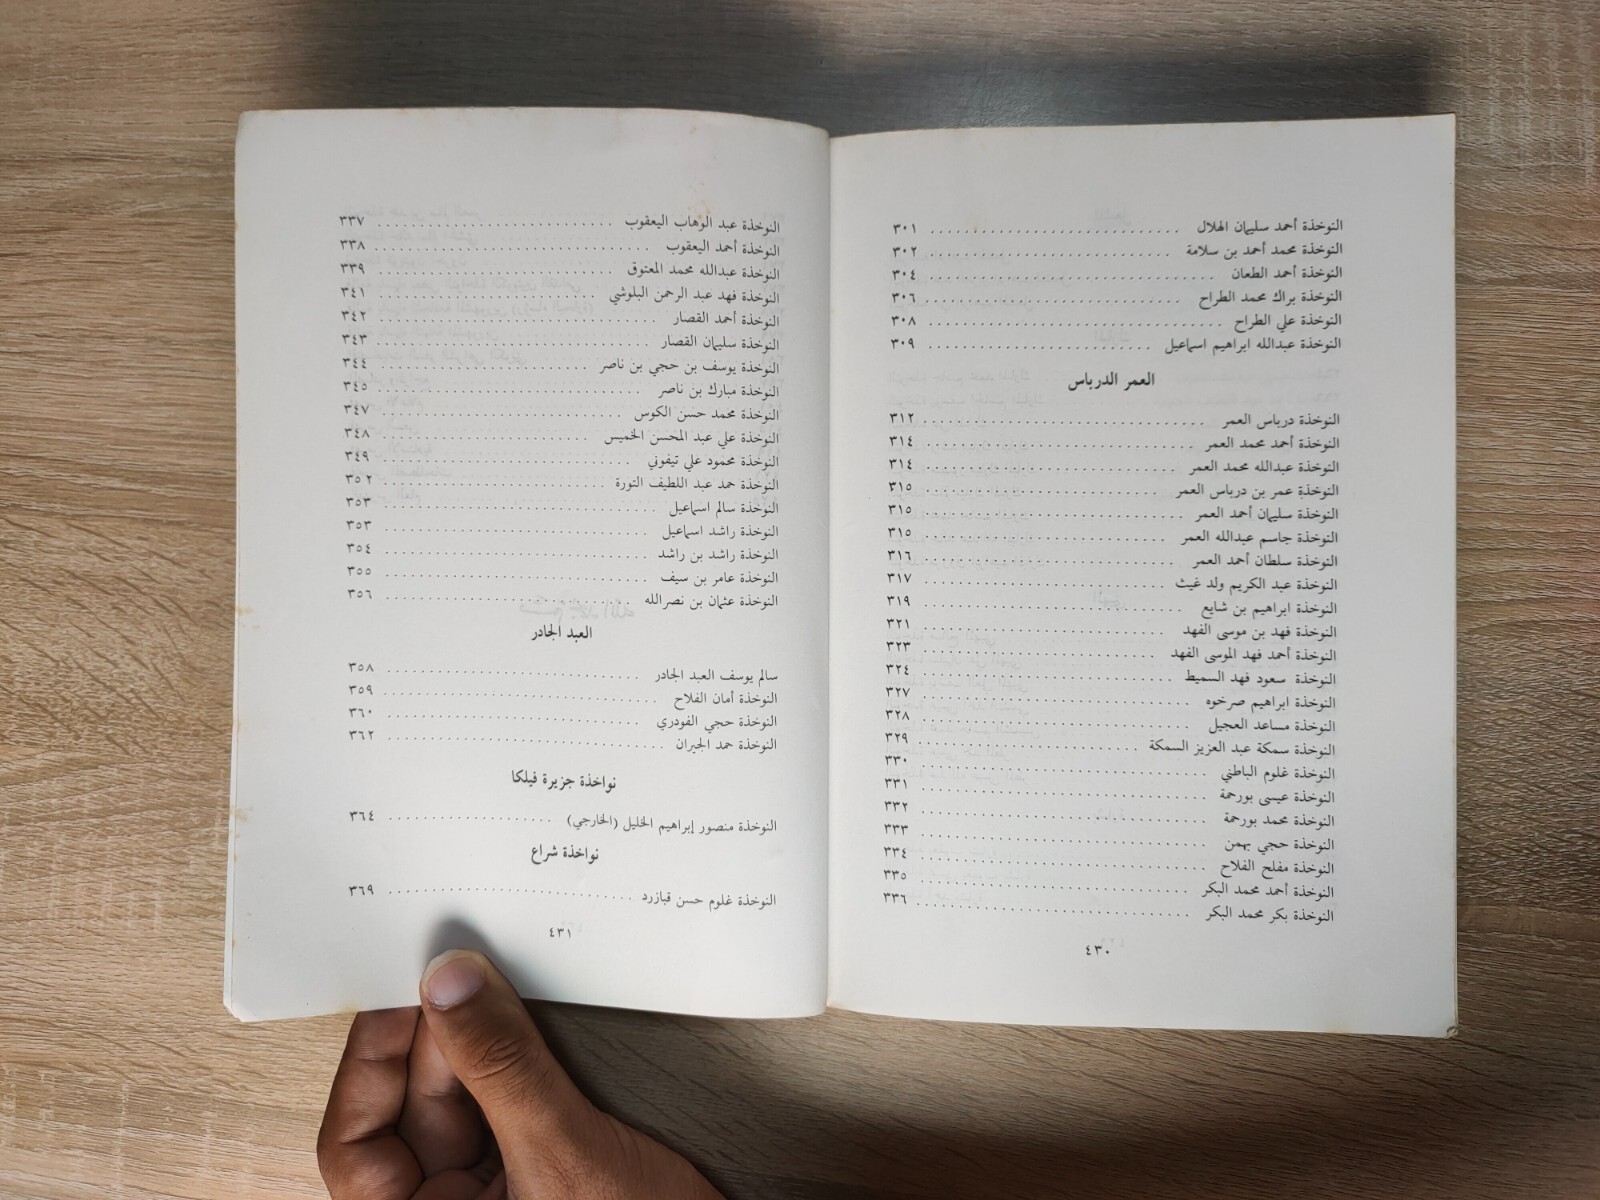 النوخذة أحمد سليمان الهلال ........ ٣٠١
النوخذة محمد أحمد بن سلامة ........ ٣٠٢
النوخذة أحمد الطعان ........ ٣٠٤
النوخذة براك محمد الطراح ........ ٣٠٦
النوخذة علي الطراح ........ ٣٠٨
النوخذة عبدالله ابراهيم اسماعيل ........ ٣٠٩
العمر الدرباس
النوخذة درباس العمر ........ ٣١٢
النوخذة أحمد محمد العمر ........ ٣١٤
النوخذة عبدالله محمد العمر ........ ٣١٤
النوخذة عمر بن درباس العمر ........ ٣١٥
النوخذة سليمان أحمد العمر ........ ٣١٥
النوخذة جاسم عبدالله العمر ........ ٣١٥
النوخذة سلطان أحمد العمر ........ ٣١٦
النوخذة عبد الكريم ولد غيث ........ ٣١٧
النوخذة ابراهيم بن شايع ........ ٣١٩
النوخذة فهد بن موسى الفهد ........ ٣٢١
النوخذة أحمد فهد الموسى الفهد ........ ٣٢٣
النوخذة سعود فهد السميط ........ ٣٢٤
النوخذة ابراهيم صرخوه ........ ٣٢٧
النوخذة مساعد العجيل ........ ٣٢٨
النوخذة سمكة عبد العزيز السمكة ........ ٣٢٩
النوخذة غلوم الباطني ........ ٣٣٠
النوخذة عيسى بورحمة ........ ٣٣١
النوخذة محمد بورحمة ........ ٣٣٢
النوخذة حجي بهمن ........ ٣٣٣
النوخذة مفلح الفلاح ........ ٣٣٤
النوخذة أحمد محمد البكر ........ ٣٣٥
النوخذة بكر محمد البكر ........ ٣٣٦
٤٣٠
النوخذة عبد الوهاب اليعقوب ........ ٣٣٧
النوخذة أحمد اليعقوب ........ ٣٣٨
النوخذة عبدالله محمد المعتوق ........ ٣٣٩
النوخذة فهد عبد الرحمن البلوشي ........ ٣٤١
النوخذة أحمد القصار ........ ٣٤٢
النوخذة سليمان القصار ........ ٣٤٣
النوخذة يوسف بن حجي بن ناصر ........ ٣٤٤
النوخذة مبارك بن ناصر ........ ٣٤٥
النوخذة محمد حسن الكوس ........ ٣٤٧
النوخذة علي عبد المحسن الخميس ........ ٣٤٨
النوخذة محمود علي تيفوني ........ ٣٤٩
النوخذة حمد عبد اللطيف التورة ........ ٣٥٢
النوخذة سالم اسماعيل ........ ٣٥٣
النوخذة راشد اسماعيل ........ ٣٥٣
النوخذة راشد بن راشد ........ ٣٥٤
النوخذة عامر بن سيف ........ ٣٥٥
النوخذة عثمان بن نصرالله ........ ٣٥٦
العبد الجادر
سالم يوسف العبد الجادر ........ ٣٥٨
النوخذة أمان الفلاح ........ ٣٥٩
النوخذة حجي الفودري ........ ٣٦٠
النوخذة حمد الجيران ........ ٣٦٢
نواخذة جزيرة فيلكا
النوخذة منصور إبراهيم الخليل (الخارجي) ........ ٣٦٤
نواخذة شراع
النوخذة غلوم حسن قبازرد ........ ٣٦٩
٤٣١